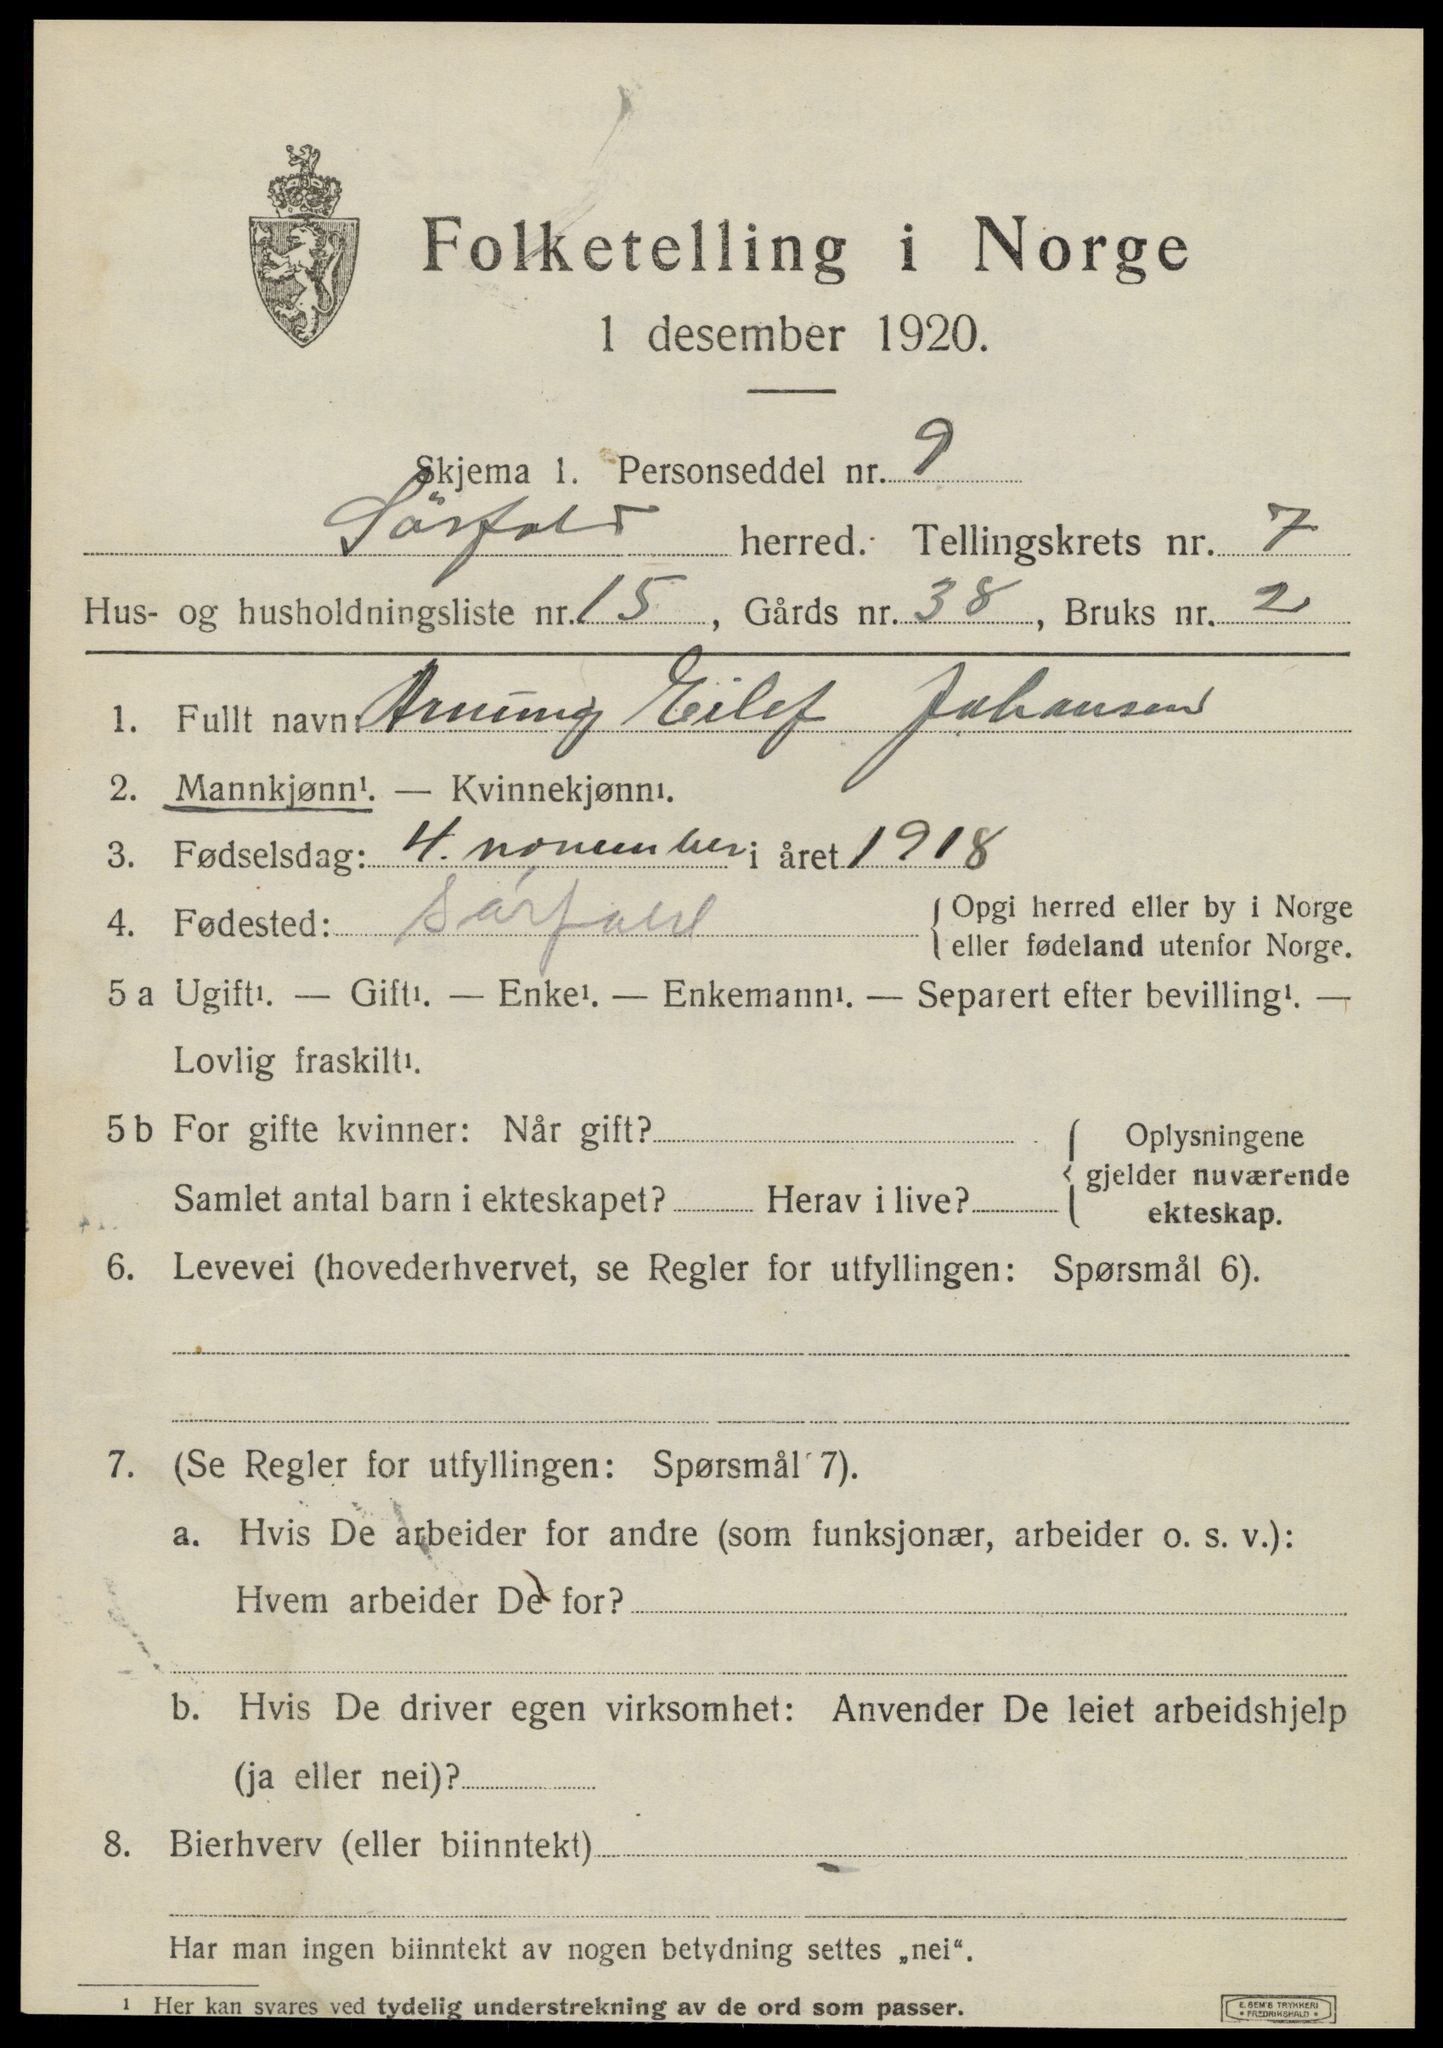 Folketelling i Norge
1 desember 1920.
Skjema 1. Personseddel nr. 9
Sörfold herred. Tellingskrets nr. 7
Hus- og husholdningsliste nr. 15, Gårds nr. 38, Bruks nr. 2
1. Fullt navn: Eilef Johansen
2. Mannkjønn¹. — Kvinnekjønn¹.
3. Fødselsdag: 4. november i året 1918
4. Fødested: Sörfold
{ Opgi herred eller by i Norge
eller fødeland utenfor Norge.
5 a Ugift¹. — Gift¹. — Enke¹. — Enkemann¹. — Separert efter bevilling¹. —
Lovlig fraskilt¹.
5 b For gifte kvinner: Når gift?
Samlet antal barn i ekteskapet? Herav i live?
{ Oplysningene
gjelder nuværende
ekteskap.
6. Levevei (hovederhvervet, se Regler for utfyllingen: Spørsmål 6).
7. (Se Regler for utfyllingen: Spørsmål 7).
a. Hvis De arbeider for andre (som funksjonær, arbeider o. s. v.):
Hvem arbeider De for?
b. Hvis De driver egen virksomhet: Anvender De leiet arbeidshjelp
(ja eller nei)?
8. Bierhverv (eller biinntekt)
Har man ingen biinntekt av nogen betydning settes „nei“.
¹ Her kan svares ved tydelig understrekning av de ord som passer.
E. SEM'S TRYKKERI
* FREDRIKSHALD *